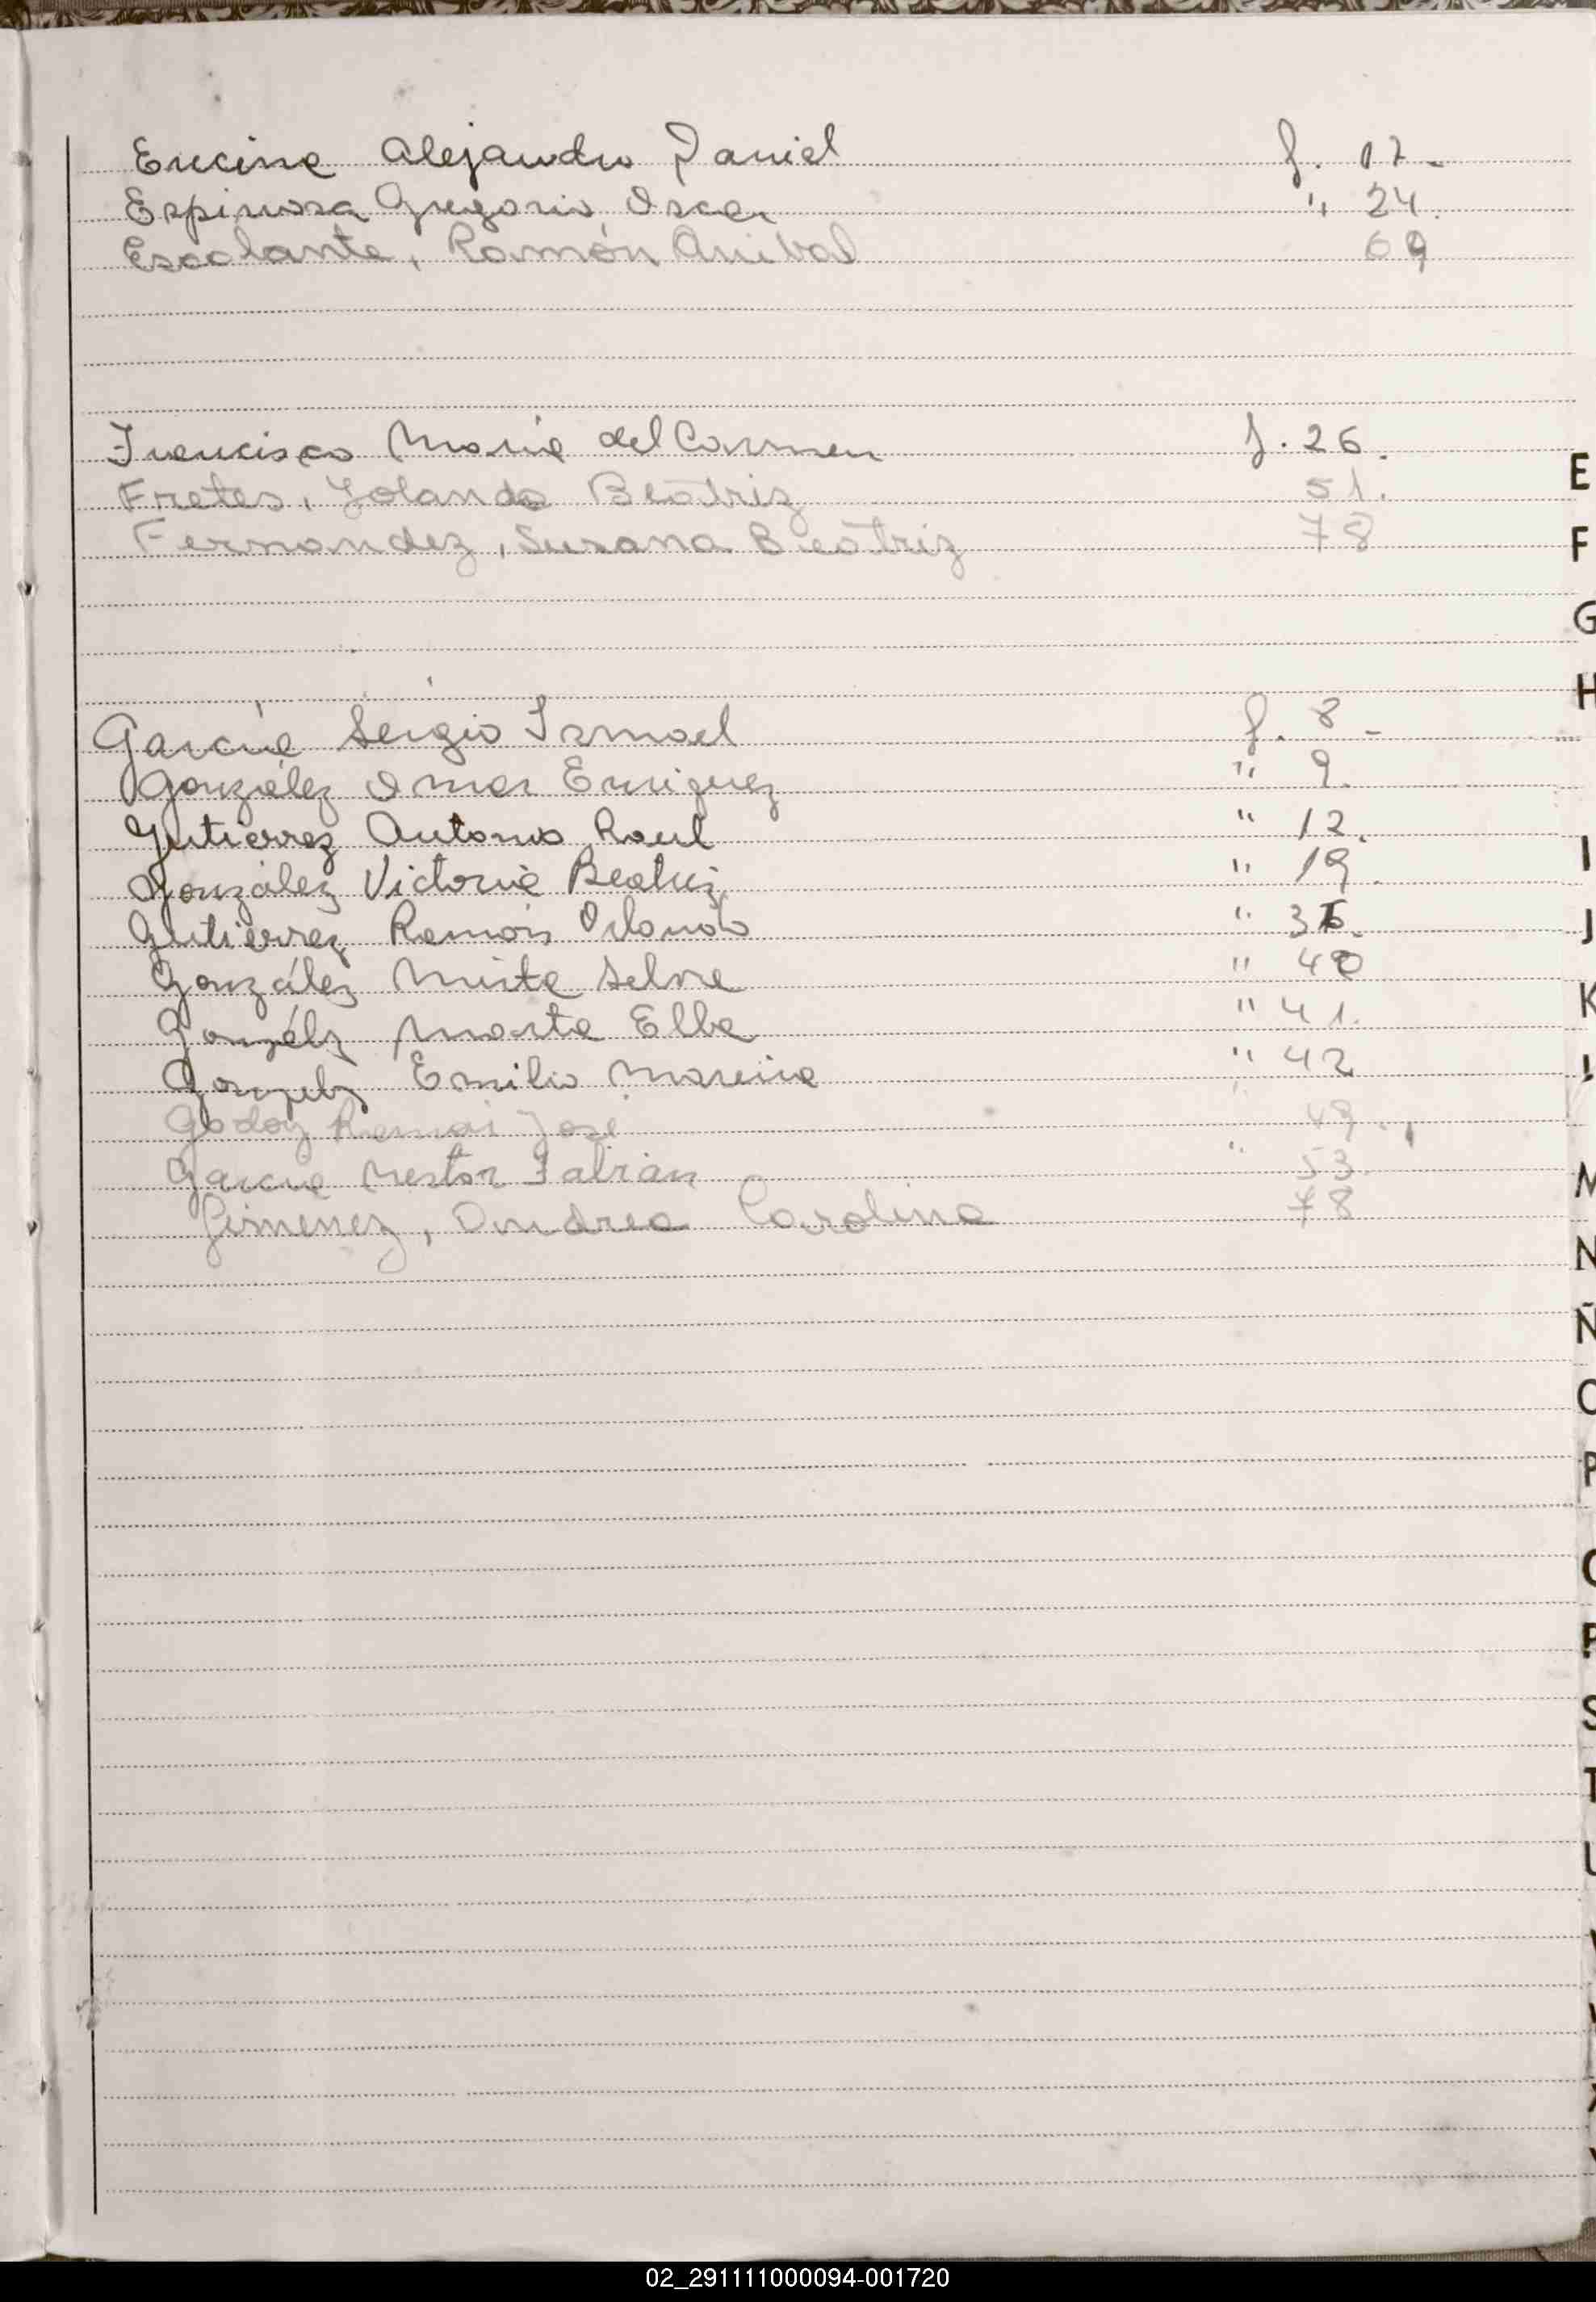 Encina Alejandro Daniel f. 17.
Espinosa Gregorio Oscar " 24.
Escalante, Ramón Anibal 69
Francisco Maria del Carmen f. 26.
Fretes, Yolanda Beatriz 51.
Fernandez, Susana Beatriz 78
E
F
G
H
García Sergio Ismael f. 8 -
González Omar Enriquez " 9.
Gutierrez Antonio Raul " 12.
González Victoria Beatriz " 19.
Gutierrez Ramón Orlando " 36.
González Mirta Selva " 40
Gonzélz Marta Elba " 41.
Gonzelz Emilio " 42
Godoy Ramón José 49.
Garcia Nestor Fabián " 53.
Gimenez, Andrea Carolina 78
I
J
K
L
M
N
Ñ
O
P
Q
R
S
T
U
02_291111000094-001720